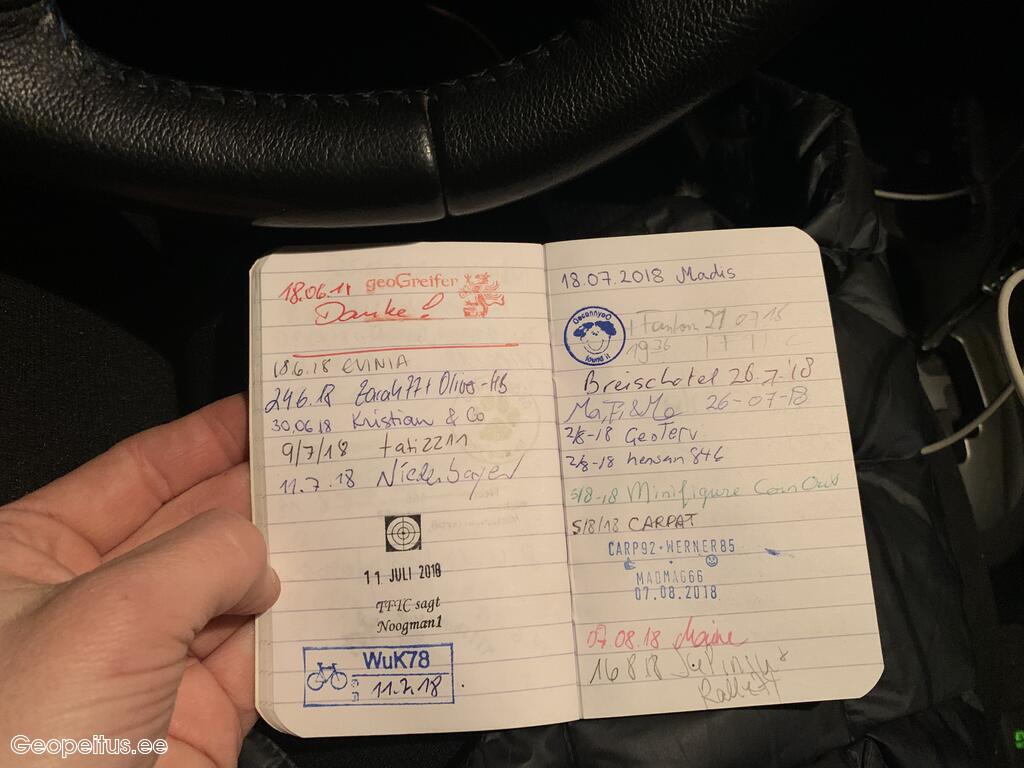 18.06.18 geoGreifer
Danke!
18.6.18 EVINIA
24.6.18
30.06.18 Kristian & Co
9/7/18 tati2211
11.7.18 Niederbayer
11 JULI 2018
TFTC sagt
Noogman1
WuK78
11.7.18
18.07.2018 Madis
found it
Fantom 21 07 18
1936
Breischotel 26.7.'18
Ma, Fi & Me 26-07-18
2/8-18 GeoTerv
2/8-18 hensan846
5/8-18 Minifigure Coin Out
5/8/18 CARPAT
CARP92·WERNER85
MADMAG66
07.08.2018
07.08.18
16 8 18
Geopeitus.ee